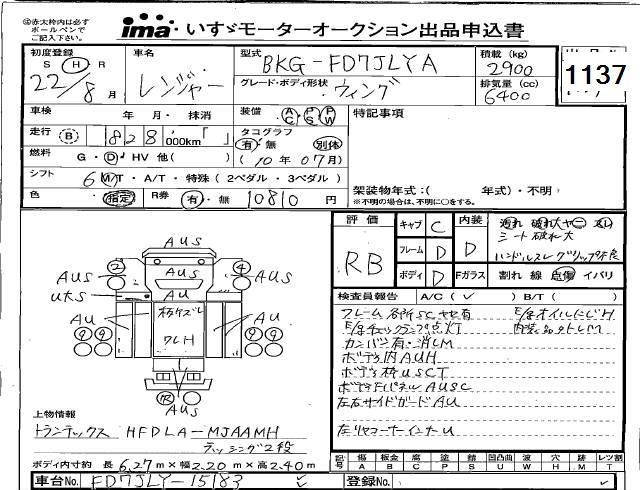 ◎赤太枠内は必ず
ボールペンで
ご記入下さい。
ima いすゞモーターオークション出品申込書
初度登録 S Ⓗ R 22/8月
車名 レンジャー
型式 BKG-FD7JLYA
グレード・ボディ形状 ウィング
積載 (kg) 2900
排気量 (cc) 6400
1137
車検 年 月・抹消
装備 AC PS PW
特記事項
走行 Ⓑ 828 000km「 」
タコグラフ 有・無 別体
燃料 G・Ⓓ・HV 他( )
(10年07月)
シフト 6 M/T・A/T・特殊(2ペダル・3ペダル)
架装物年式:( 年式)・不明
※不明の場合は、不明に○をする。
色 指定 R券 有・無 10810 円
評価 RB
キャブ C 内装 D
フレーム D
ボディ D Fガラス 割れ 線 点傷 イバリ
シート破れ大
AUS
AUS AUS AUS
UtS AU
AU AU
柄ケズレ
ワレH
AUS
検査員報告 A/C(✓) B/T( )
フレーム各所SCサビ有
E/gチェックランプ点灯
カンバン有・消しM
ボデー内AUH
ボデー柄USCT
左右サイドガードAU
左リヤコーナーインナU
上物情報
トランテックス HFDLA-MJAAMH
ラッシング2段
ボディ内寸約 長 6.27m×幅 2.20m×高 2.40m
記号 傷A 凹B 腐C 塗P 錆S 凹凸曲U 波W 穴H 跡M レツ割T
車台No. FD7JLY-15183 ✓
登録No. ✓